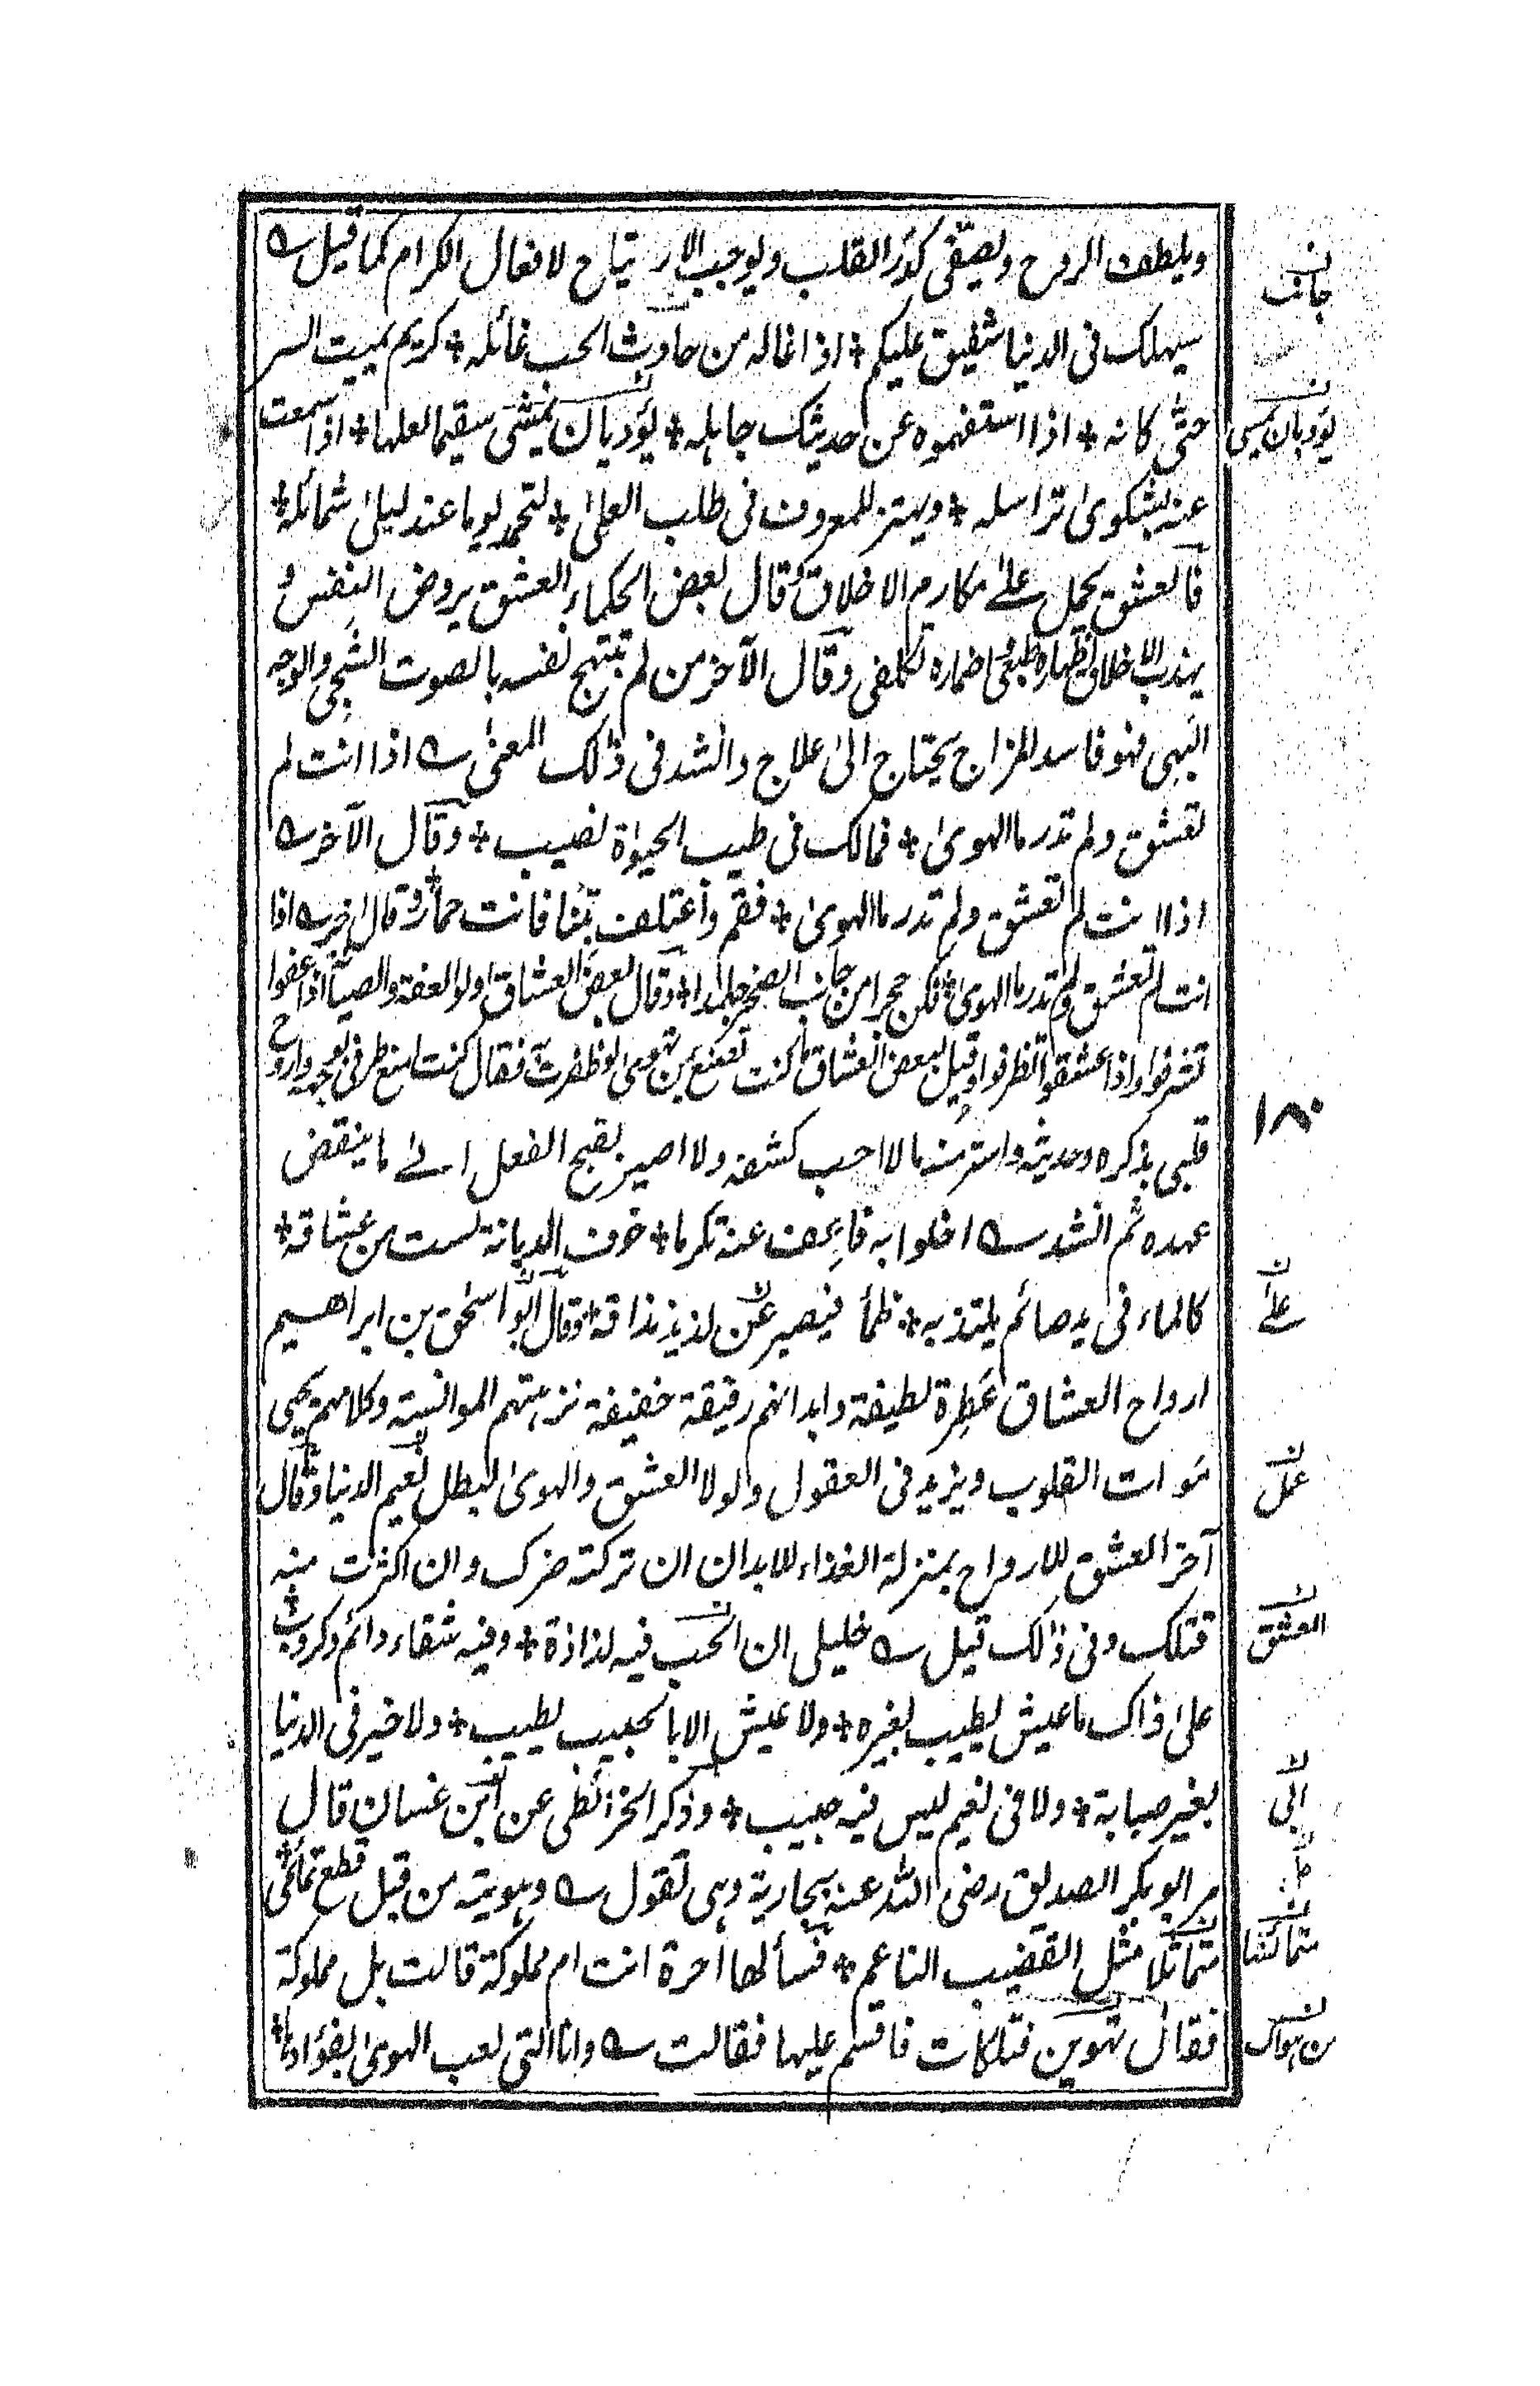 ويلطف الروح ويصفّى كدَر القلب ويوجب الارتياح لافعال الكرام كما قيل ؎
سيهلك فى الدنيا شفيق عليكم ٭ اذا غاله من حادث الحب غائله ٭ كريم يميت السر
حتّى كانه ٭ اذا استفهموه عن حديثك جاهله ٭ يؤد بان يمشى سقيما لعلها ٭ اذا سمعت
عنه بشكوىٰ تراسله ٭ ويهتز للمعروف فى طلب العلىٰ ٭ لتحمد يوما عند ليلىٰ شمائله ٭
فالعشق يحمل علےٰ مكارم الاخلاق وقال بعض الحكماء العشق يروض النفس و
يهذب الاخلاق اظهاره طبعى واضماره تكلفى وقال الآخر من لم تبتهج نفسه بالصوت الشجى والوجه
البهى فهو فاسد المزاج يحتاج الىٰ علاج وانشد فى ذٰلك المعنىٰ ؎ اذا انت لم
تعشق ولم تدر ما الهوىٰ ٭ فمالك فى طيب الحيوٰة نصيب ٭ وقال الآخر ؎
اذا انت لم تعشق ولم تدر ما الهوىٰ ٭ فقم وأعتلف تبنا فانت حمار ٭ وقال آخر ؎ اذا
انت لم تعشق ولم تدر ما الهوىٰ ٭ فكن حجرا من جانب الصخر جلمدا ٭ وقال بعض العشاق اولو العفة والصيانة اذا عفوا
تشرفوا واذا عشقوا تظرفوا وقيل لبعض العشاق ما كنت تصنع بمن تهوىٰ لو ظفرت فقال كنت امتع طرفى بوجهه واروح
قلبى بذكره وحديثه واستر منه ما لا احب كشفه ولا اصير بقبح الفعل الےٰ ما ينقض
عهده ثم انشد ؎ اخلوا به فاعف عنه تكرما ٭ خوف الديانة لست من عشاقه ٭
كالماء فى يد صائم يلتذ به ٭ ظمأ فيصبر عن لذيذ مذاقه ٭ وقال ابو اسحٰق بن ابراهيم
ارواح العشاق عَطِرة لطيفة وابدانهم رقيقة خفيفة نزهتهم الموانسة وكلامهم يحيى
موات القلوب ويزيد فى العقول ولولا العشق والهوىٰ لبطل نعيم الدنيا وقال
آخر العشق للارواح بمنزلة الغذاء للابدان ان تركته ضرك وان اكثرت منه
قتلك وفى ذٰلك قيل ؎ خليلى ان الحب فيه لذاذة ٭ وفيه شقاء دائم وكروب ٭
علىٰ ذاك ما عيش يطيب بغيره ٭ ولا عيش الا بالحبيب يطيب ٭ ولا خير فى الدنيا
بغير صبابة ٭ ولا فى نعيم ليس فيه حبيب ٭ وذكر الخرائطى عن ابن غسان قال
مر ابو بكر الصديق رضى الله عنه بجارية وهى تقول ؎ وهويته من قبل قطع تمائمى ٭
متماثلا مثل القضيب الناعم ٭ فسألها أحرة انت ام مملوكة قالت بل مملوكة
فقال تهوين فتلكات فاقسم عليها فقالت ؎ وانا التى لعب الهوىٰ بفؤادها ٭
جانف
يؤد بان يمسى
١٨٠
علےٰ
عمل
العشق
الى
متمائسا
من هواك